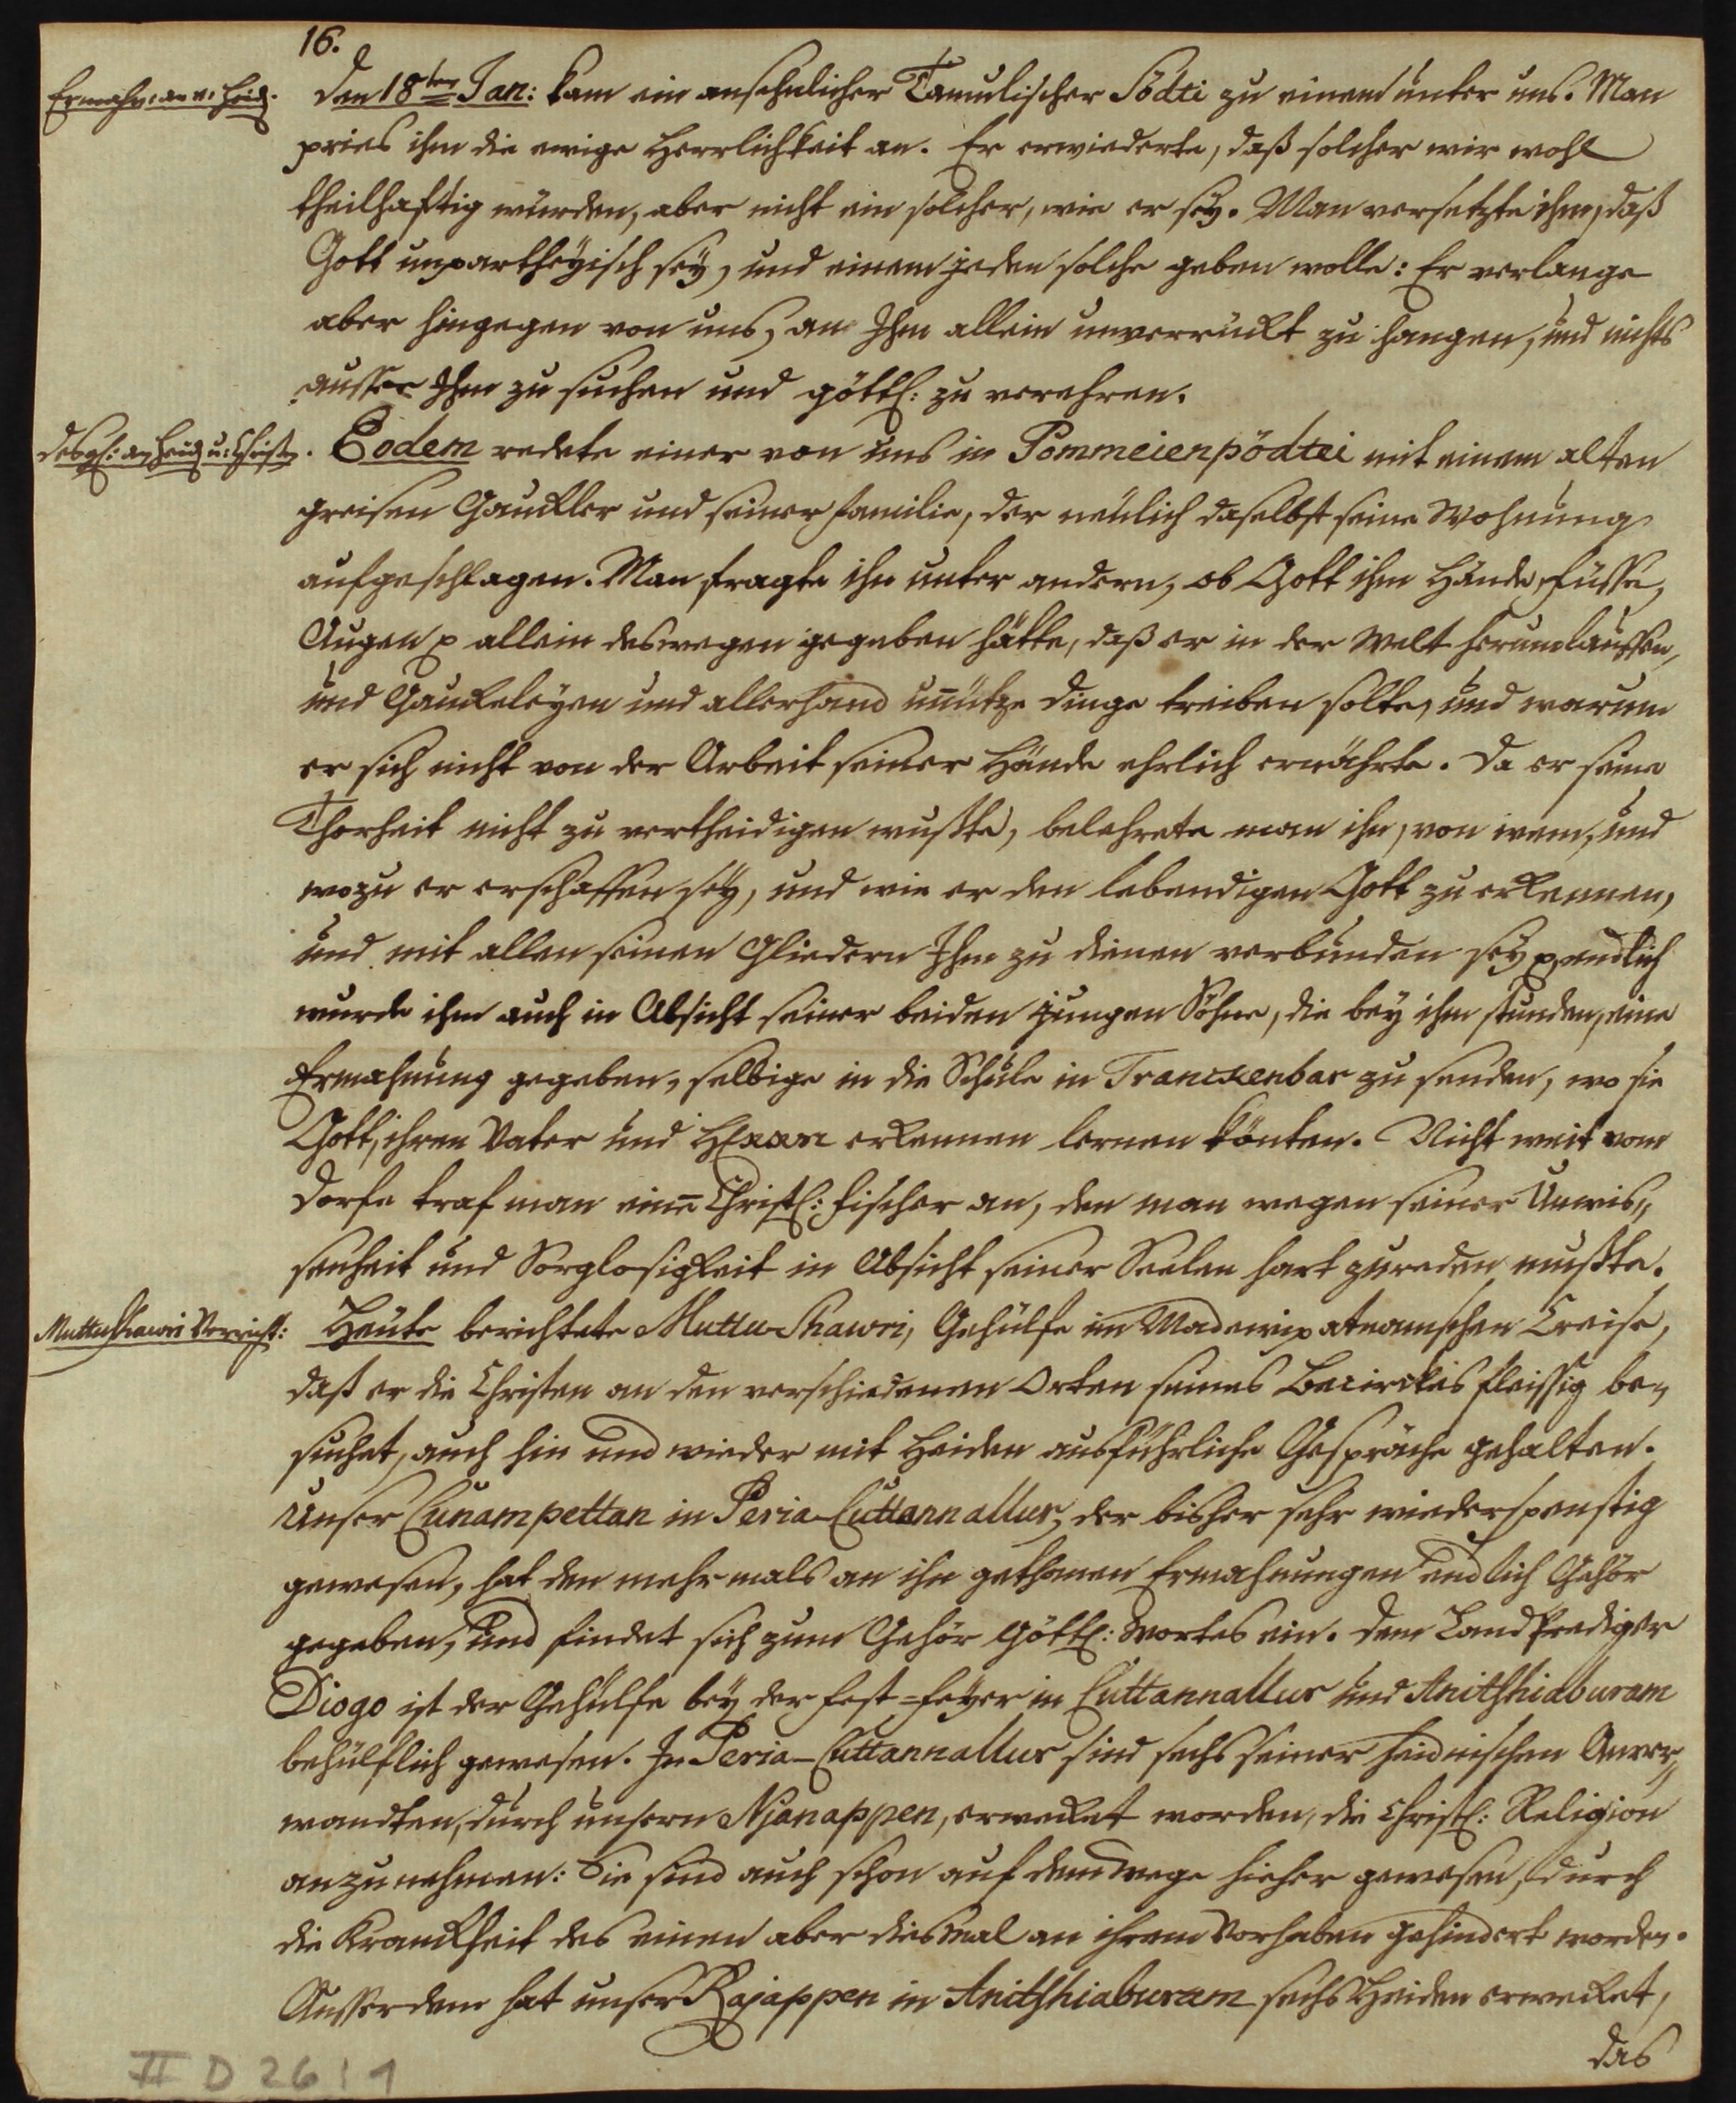 16.
Ermahn: an n: Heid.
Den 18ten Jan: kam ein ansehnlicher Tamulischer Södti zu einem unter uns. Man
pries ihm die ewige Herrlichkeit an. Er erwiederte, daß solcher wir wohl
theilhaftig würden, aber nicht ein solcher, wie er sey. Man versetzte ihm, daß
Gott unpartheyisch sey, und einem jeden solche geben wolle: Er verlange
aber hingegen von uns, an Ihm allein unverrückt zu hangen, und nichts
ausser Ihm zu suchen und göttl: zu verehren.
desgl: an Heid. u: Christen.
Eodem redete einer von uns in Pommeienpödtei mit einem alten
greisen Gauckler und seiner Familie, der neulich daselbst seine Wohnung
aufgeschlagen. Man fragte ihn unter andern, ob Gott ihm Hände, Füsse,
Augen p allein deswegen gegeben hätte, daß er in der Welt herumlauffen,
und Gauckeleyen und allerhand unnütze Dinge treiben solte, und warum
er sich nicht von der Arbeit seiner Hände ehrlich ernährte. Da er seine
Thorheit nicht zu vertheidigen wußte, belehrete man ihn, von wem, und
wozu er erschaffen sey, und wie er den lebendigen Gott zu erkennen,
und mit allen seinen Gliedern Ihm zu dienen verbunden sey p. endlich
wurde ihm auch in Absicht seiner beiden jungen Söhne, die bey ihm stunden, eine
Ermahnung gegeben, selbige in die Schule in Tranckenbar zu senden, wo sie
Gott, ihren Vater und HErrn erkennen lernen könten. Nicht weit vom
Dorfe traf man einen Christl: Fischer an, den man wegen seiner Unwis„
senheit und Sorglosigkeit in Absicht seiner Seelen hart zureden mußte.
Muttu Shawri Verricht:
Heute berichtete Muttu-Shawri, Gehülfe im Madewipatnamschen Creise,
daß er die Christen an den verschiedenen Orten seines Becirckes fleissig be„
suchet, auch hin und wieder mit Heiden ausführliche Gespräche gehalten.
Unser Cunampettan in Peria-Cuttannallur, der bisher sehr wiederspenstig
gewesen, hat den mehrmals an ihn gethanen Ermahnungen endlich Gehör
gegeben, und findet sich zum Gehör Göttl: Wortes ein. Dem Land Prediger
Diogo ist der Gehülfe bey der Fest-Feyer in Cuttannallur und Anitshiaburam
behülflich gewesen. In Peria-Cuttannallur sind sechs seiner heidnischen Anver„
wandten, durch unsern Njanappen, erwecket worden, die Christl: Religion
anzunehmen: Sie sind auch schon auf dem Wege hieher gewesen, durch
die Kranckheit des einen aber diesmal an ihrem Vorhaben gehindert worden.
Ausserdem hat unser Rajappen in Anitshiaburam sechs Heiden erwecket,
das
II D 26 : 1